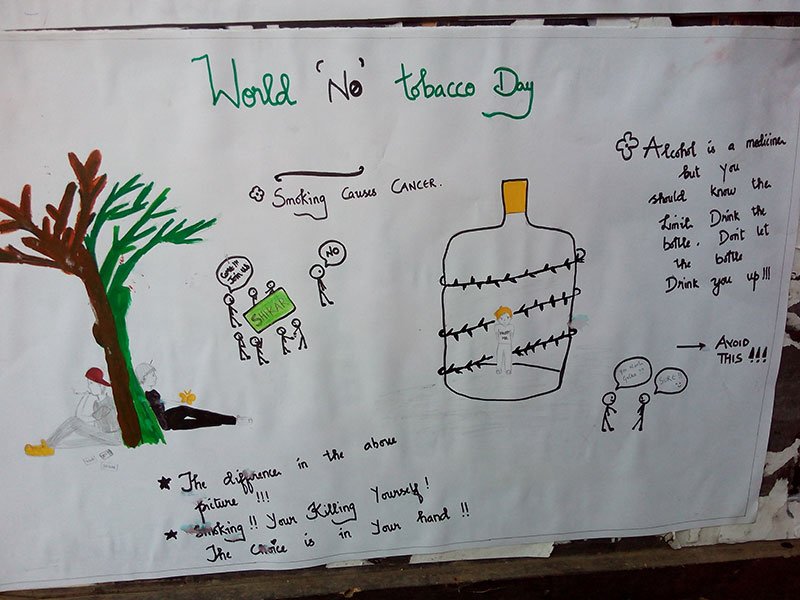 World 'No' tobacco Day
Smoking Causes Cancer.
Come !!
Join us
No
SHIKAR
Alcohol is a medicine
but you
should know the
Limit. Drink the
bottle. Dont let
the bottle
Drink you up!!!
→ AVOID
THIS !!!
SURE !!
The difference in the above
picture !!!
Smoking !! Your Killing Yourself !
The Choice is in Your hand !!